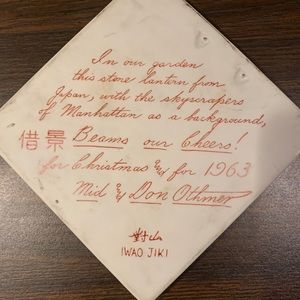 In our garden
this stone lantern from
Japan, with the skyscrapers
of Manhattan as a background,
借景 Beams our Cheers!
for Christmas & for 1963
Mid & Don Othmer
對山
IWAO JIKI